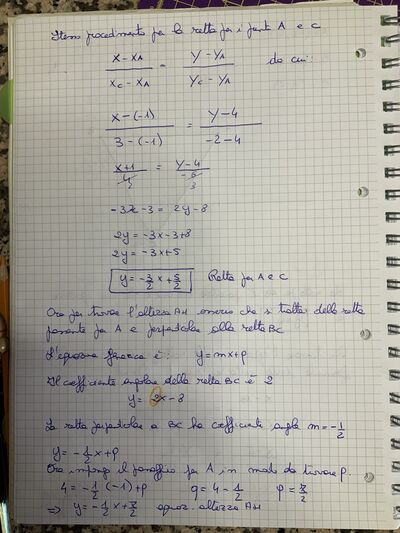 Stesso procedimento per la retta per i punti A e C
x-xA / xC-xA = y-yA / yC-yA da cui:
x-(-1) / 3-(-1) = y-4 / -2-4
x+1 / 4 = y-4 / -6
2 3
-3x-3 = 2y-8
2y = -3x-3+8
2y = -3x+5
y = -3/2 x + 5/2 Retta per A e C
Ora per trovare l'altezza AH ovvero che si tratta della retta
passante per A e perpendicolare alla retta BC
L'equazione generica è: y=mx+p
Il coefficiente angolare della retta BC è 2
y = 2x-8
La retta perpendicolare a BC ha coefficiente angolare m=-1/2
y=-1/2 x+p
Ora impongo il passaggio per A in modo da trovare p.
4 = -1/2 (-1)+p q=4-1/2 p=7/2
⇒ y=-1/2 x+7/2 equaz. altezza AH